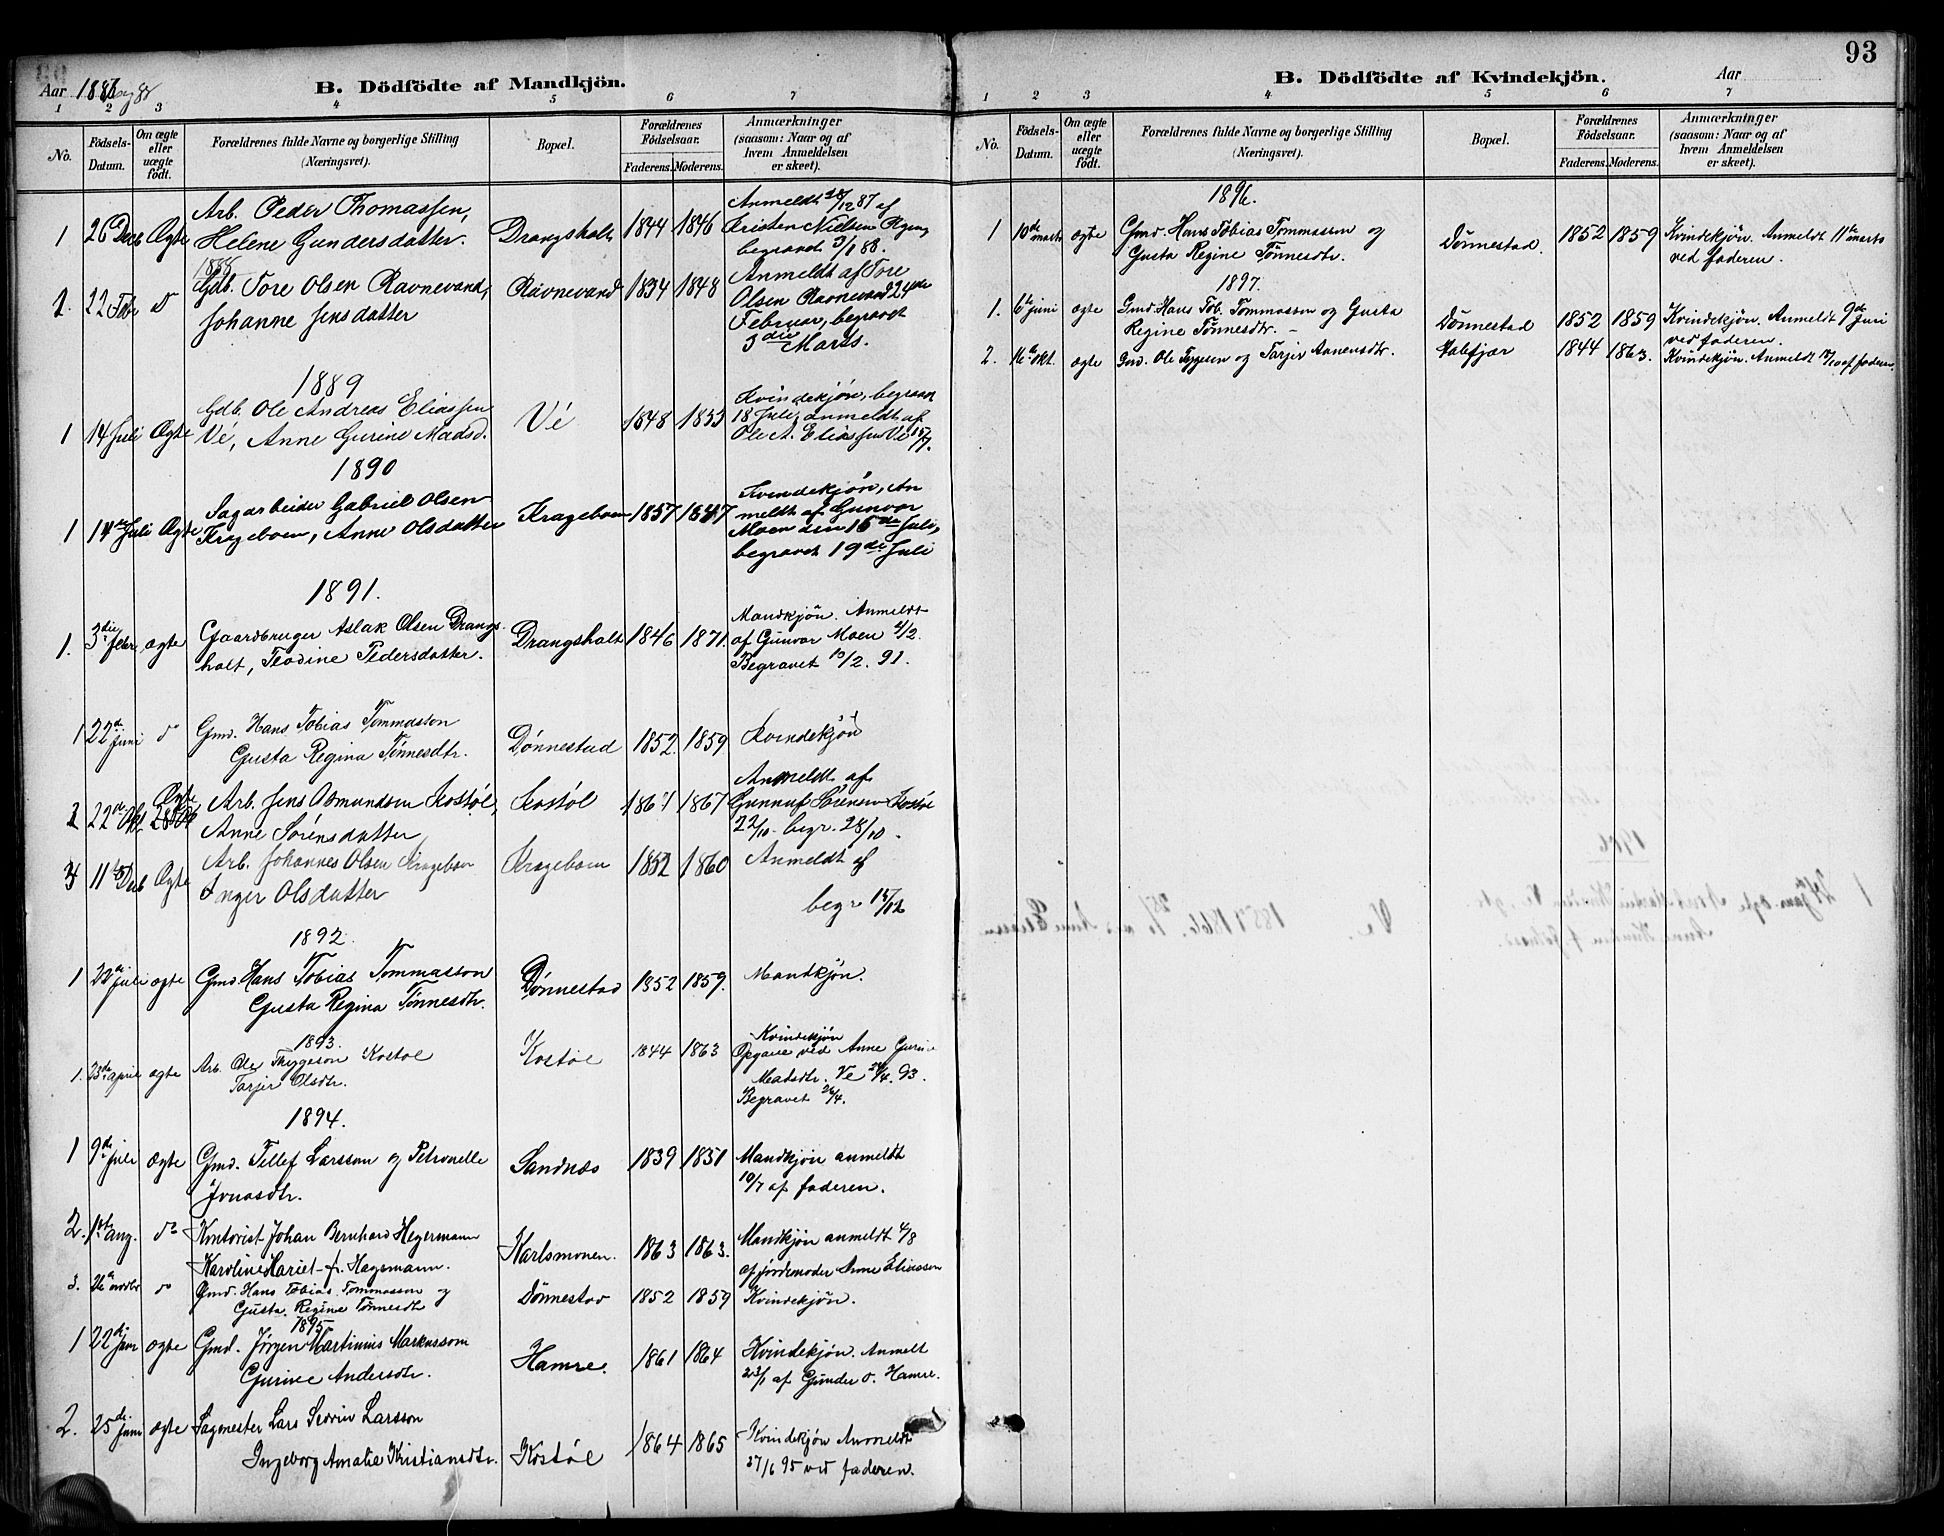 93
Aar 1887 og 88
B. Dödfödte af Mandkjön.
1 2 3 4 5 6 7
No.
Födsels-Datum.
Om ægte eller uægte födt.
Forældrenes fulde Navne og borgerlige Stilling (Næringsvei).
Bopæl.
Forældrenes Födselsaar.
Faderens. Moderens.
Anmærkninger (saasom: Naar og af hvem Anmeldelsen er skeet).
1 26 Decb Ægte Arb. Peder Thomassen, Drangsholt 1844 1846 Anmeldt 28/12 87 af
Helene Gundersdatter. Kristen Nielsen
begravet 3/1 88.
1888
1. 22 Febr do Gdb. Tore Olsen Ravnevand, Ravnevand 1834 1848 Anmeldt af Tore
Johanne Jensdatter Olsen Ravnevand 24de
Februar, begravet
3die Marts.
1889
1 14 Juli Ægte Gdb. Ole Andreas Eliassen Vé 1848 1853 Kvindekjön, begravet
Vé, Anne Gurine Madsd. 18 Juli, anmeldt af
Ole A. Eliassen Vé 15/7.
1890
1 14de Juli Ægte Sagarbeider Gabriel Olsen Krageboen 1857 1847 Kvindekjön, An
Krageboen, Anne Olsdatter meldt af Gunvor
Moen den 15de Juli,
begravet 19de Juli
1891.
1. 3die Febr. ægte Gaardbruger Aslak Olsen Drangs Drangsholt 1846 1871. Mandkjön. Anmeldt
holt, Teodine Pedersdatter. af Gunvor Moen 4/2.
Begravet 10/2. 91.
1 22de Juni do Gmd. Hans Tobias Tommasson Dönnestad 1852. 1859 Kvindekjön
Gusta Regina Tönnesdtr.
2 22de Okt. Ægte Arb. Jens Osmundsen Kostöl, Kostöl 1864 1867 Anmeldt af
Anne Sörensdatter Gunnuf Sörensen Kostöl
22/10 begr. 28/10.
3 11te Decb Ægte Arb. Johannes Olsen Krageboen Krageboen 1852 1860 Anmeldt af
Inger Olsdatter begr 15/12
1892.
1 22de juli ægte Gmd Hans Tobias Tommasson Dönnestad 1852 1859. Mandkjön.
Gusta Regina Tönnesdtr.
1893.
1. 23de april ægte Arb. Ole Thyggeson Kostöl Kostöl 1844 1863 Kvindekjön
Tarjer Olsdtr. Opgave ved Anne Gurine
Madsdtr. Ve 24/4. 93.
Begravet 26/4.
1894.
1 9de juli ægte Gmd. Tellef Larsson og Petronelle Sandnæs 1839 1851 Mandkjön anmeldt
Jonasdtr. 10/7 af faderen.
2. 1ste aug. do Kontorist Johan Bernhard Hegermann Karlsmonen. 1863 1863. Mandkjön anmeldt 4/8
Karoline Mariet f. Hagemann. af jordemoder Anne Eliassen
3. 26de novbr do Gmd. Hans Tobias Tommasson og Dönnestad 1852 1859 Kvindekjön.
Gusta Regine Tönnesdt
1895
1 22de jan ægte Gmd. Jørgen Martinius Markussom Hamre. 1861 1864 Kvindekjön. Anmelt
Gurine Andersdtr. 23/1 af Gunder O. Hamre.
2. 25de juni ægte Sagmester Lars Severin Larsson Kostöl 1864 1865 Kvindekjön Anmeldt
Ingeborg Amalie Kristiansdtr. 27/6 95 ved faderen.
B. Dödfödte af Kvindekjön.
Aar
1 2 3 4 5 6 7
No.
Födsels-Datum.
Om ægte eller uægte födt.
Forældrenes fulde Navne og borgerlige Stilling (Næringsvei).
Bopæl.
Forældrenes Födselsaar.
Faderens. Moderens.
Anmærkninger (saasom: Naar og af hvem Anmeldelsen er skeet).
1896.
1 10de marts ægte Gmd. Hans Tobias Tommassen og Dönnestad. 1852 1859 Kvindekjön. Anmeldt 11te marts
Gusta Regine Tönnesdtr. ved faderen.
1897.
1. 6te juni ægte Gmd. Hans Tob. Tommasson og Gusta Dönnestad 1852 1859 Kvindekjön. Anmeldt 9de juni
Regine Tönnesdtr. ved faderen.
2. 16de okt. ægte Gmd. Ole Tygesen og Tarjer Annensdtr. 1844 1863. Kvindekjön. Anmeldt 17/10 af faderen.